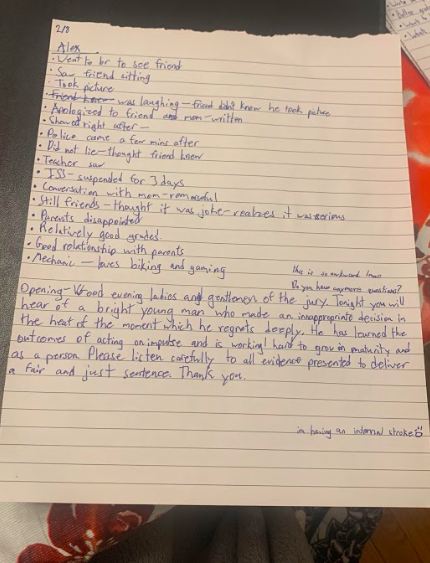 2/8
Alex
• Went to br to see friend
• Saw friend sitting
• Took picture
• friend knew was laughing – friend didn't know he took picture
• Apologized to friend and mom – written
• Showed right after –
• Police came a few mins after
• Did not lie – thought friend knew
• Teacher saw
• ISS – suspended for 3 days
• Conversation with mom – remorseful
• Still friends – thought it was joke – realizes it was serious
• Parents disappointed
• Relatively good grades
• Good relationship with parents
• Mechanic – loves biking and gaming
this is so awkward
Do you have anymore questions?
Opening – Good evening ladies and gentlemen of the jury. Tonight you will
hear of a bright young man who made an innappropriate decision in
the heat of the moment which he regrets deeply. He has learned the
outcomes of acting on impulse and is working hard to grow in maturity and
as a person. Please listen carefully to all evidence presented to deliver
a fair and just sentence. Thank you.
im having an internal stroke